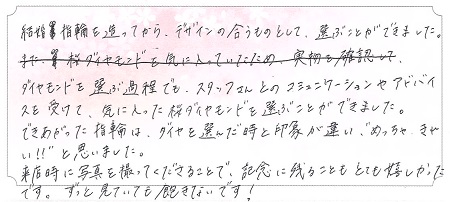 結婚指輪を造ってから、デザインの合うものとして、選ぶことができました。
また、桜ダイヤモンドを気に入っていたため、実物を確認して、
ダイヤモンドを選ぶ過程でも、スタッフさんとのコミュニケーションやアドバイ
スを受けて、気に入った桜ダイヤモンドを選ぶことができました。
できあがった指輪は、ダイヤを選んだ時と印象が違い、"めっちゃ、きれ
い!!"と思いました。
来店時に写真を撮ってくださることで、記念に残ることもとても嬉しかった
です。ずっと見ていても飽きないです!